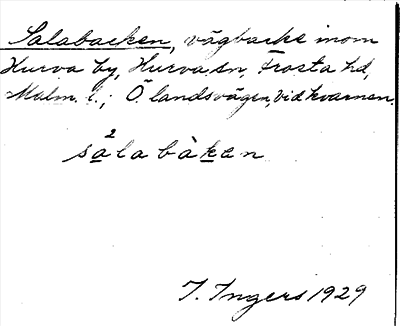 Salabacken, vägbacke inom
Hurva by, Hurva sn, Frosta hd,
Malm. l.; Ö. landsvägen, vid kvarnen.
2
salabàken
I. Ingers 1929